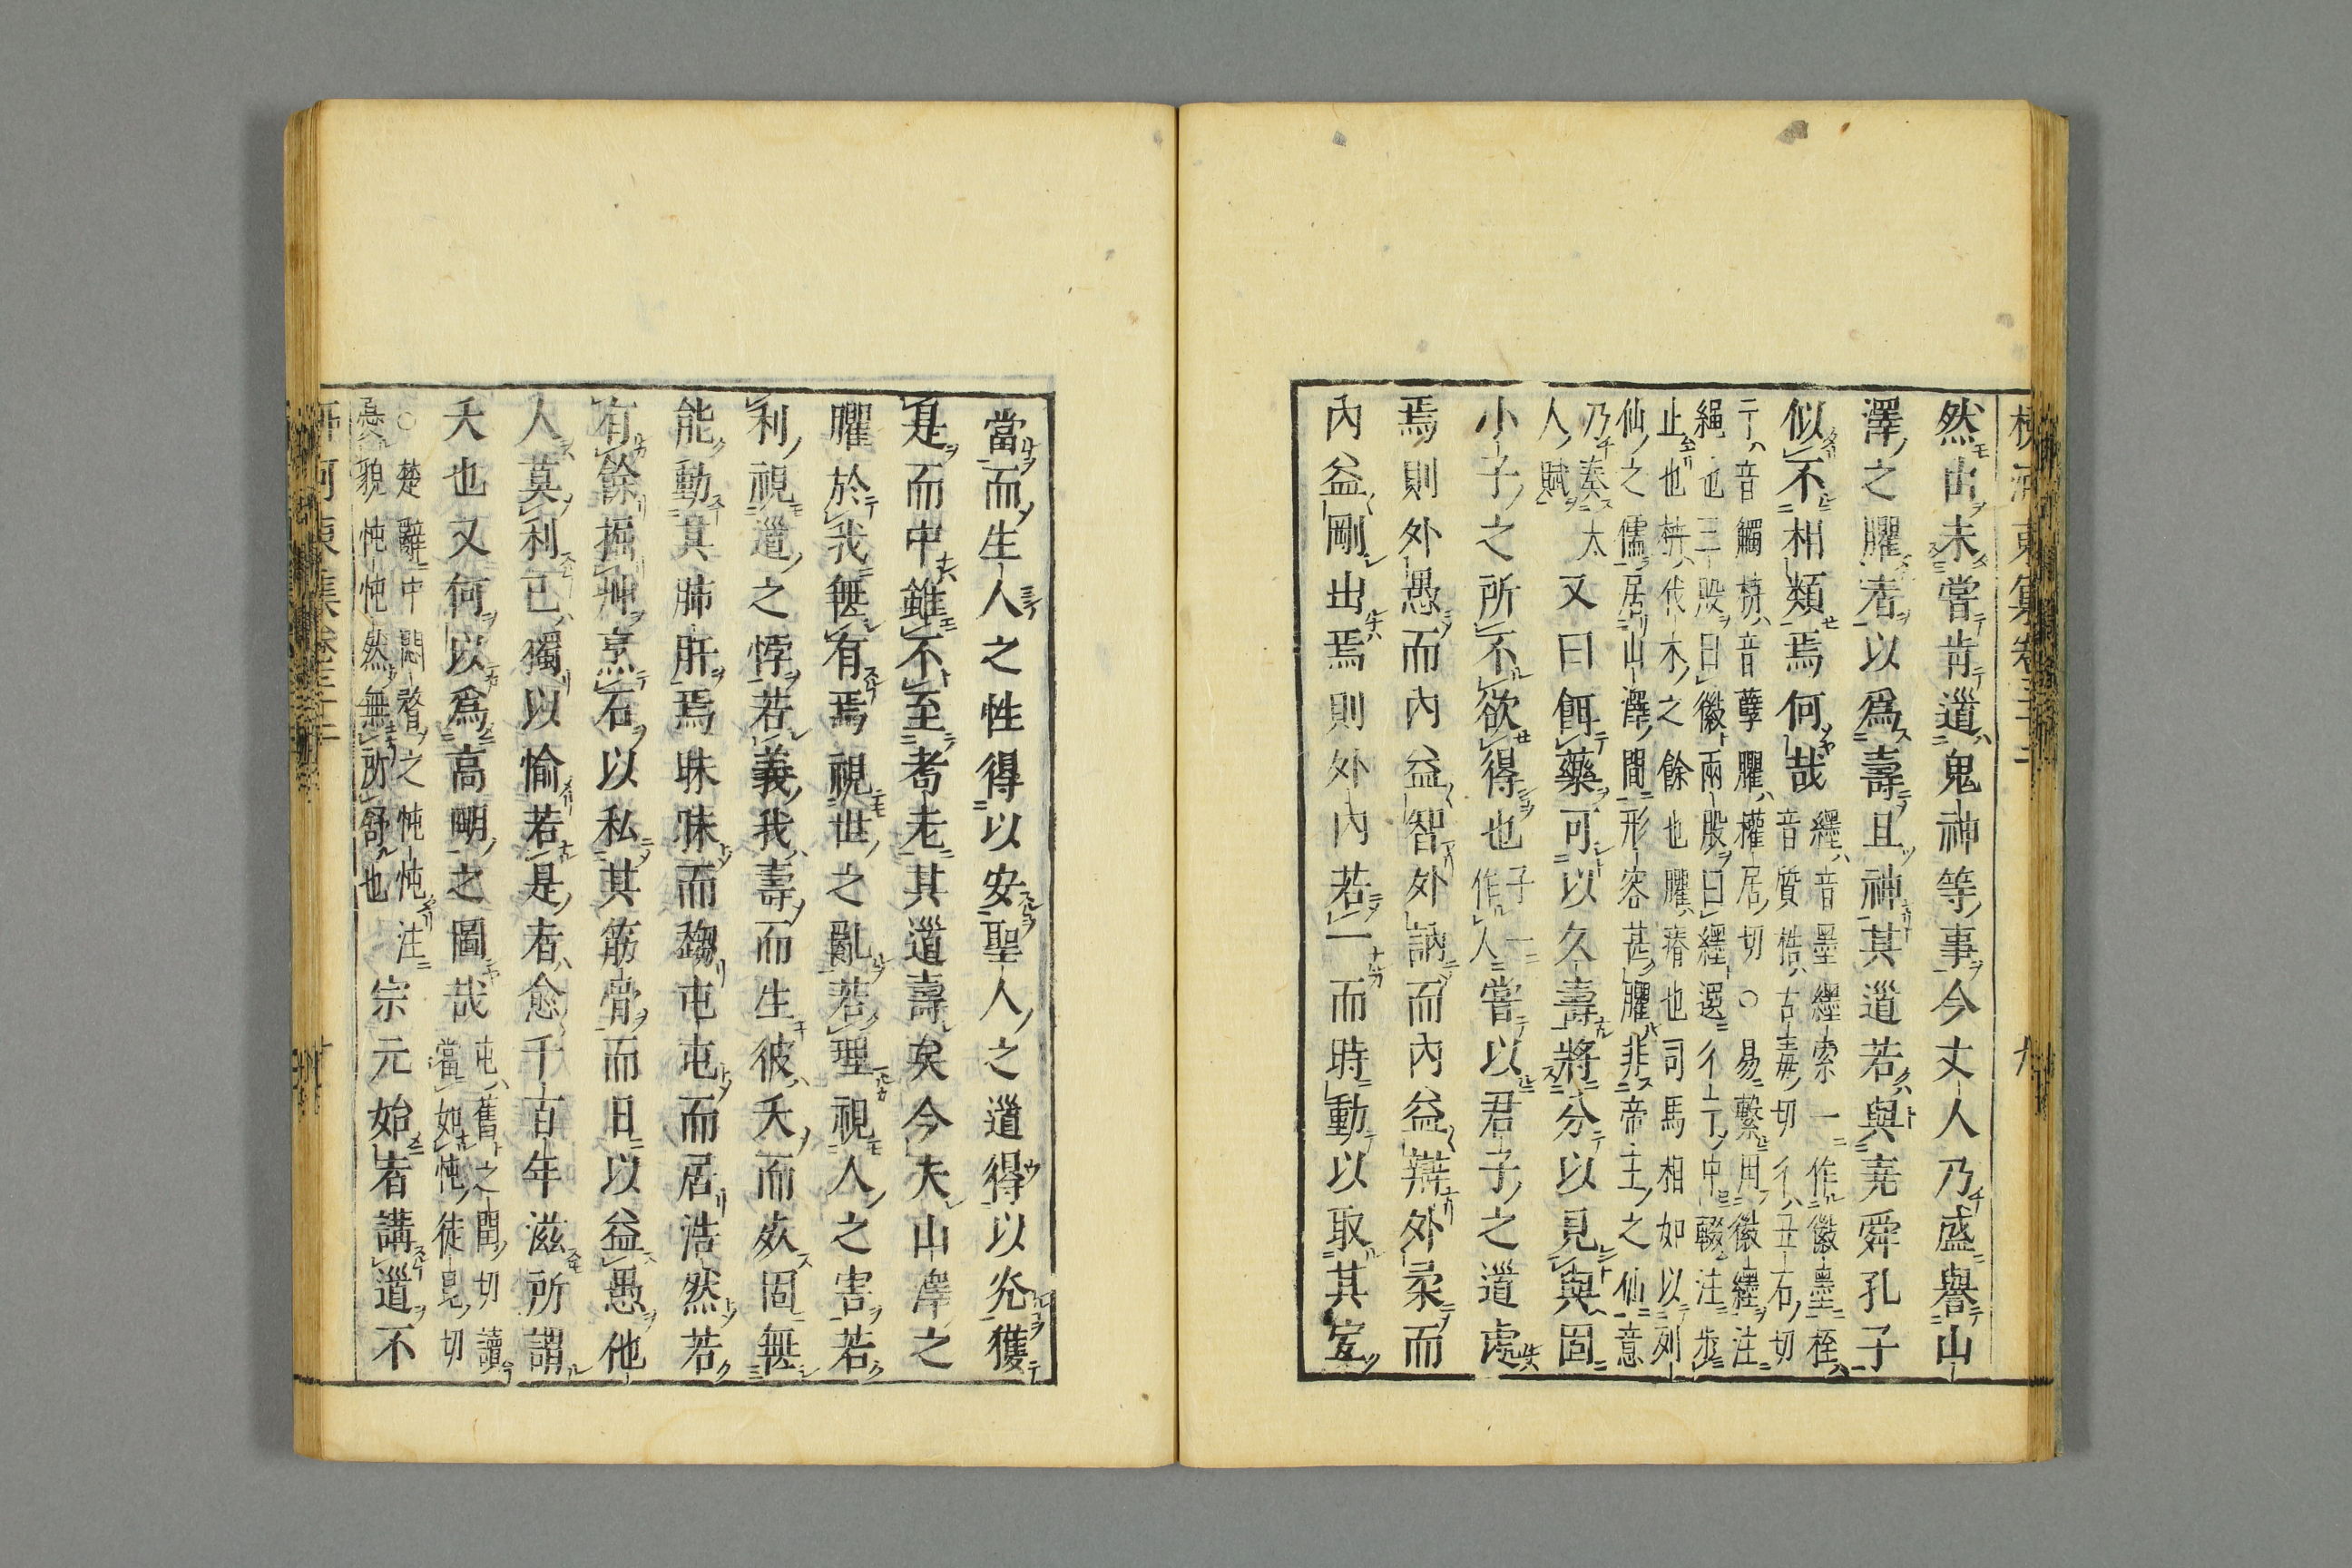 然由未嘗肯道鬼神等事今丈人乃盛譽山
澤之臞者以爲壽且神其道若與堯舜孔子
似不相類焉何哉
纆音墨纆索一作徽墨桎
音質梏古毒切彳丑石切
亍音觸枿音孽臞權居切○易繫用徽纆注
繩也三股曰徽兩股曰纆選彳亍中輟注步
止也枿伐木之餘也臞瘠也司馬相如以列
仙之儒居山澤間形容甚臞非帝王之仙意
乃奏大
人賦
又曰餌藥可以久壽將分以見與固
小子之所不欲得也
子一
作人
嘗以君子之道處
焉則外愚而內益智外訥而內益辯外柔而
內益剛出焉則外內若一而時動以取其宜
當而生人之性得以安聖人之道得以光獲
是而中雖不至耇老其道壽矣今夫山澤之
臞於我無有焉視世之亂若理視人之害若
利視道之悖若義我壽而生彼夭而死固無
能動其肺肝焉昧昧而趨屯屯而居浩然若
有餘掘艸烹石以私其筋骨而日以益愚他
人莫利己獨以愉若是者愈千百年滋所謂
夭也又何以爲高明之圖哉
屯舊之閏切讀
當如忳徒昆切
○楚辭中悶瞀之忳忳注
憂貌忳忳然無所舒也
宗元始者講道不